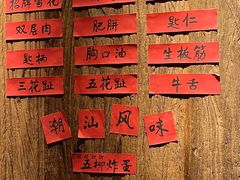 招牌雪花
双层肉 肥胼 匙仁
匙柄 胸口油 生板筋
三花趾 五花趾 牛舌
潮 汕 风 味
五柳炸蛋